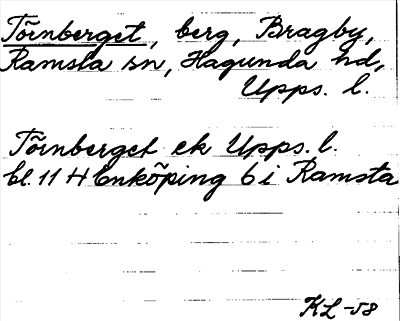 Törnberget, berg, Bragby,
Ramsta sn, Hagunda hd,
Upps. l.
Törnberget ek Upps. l.
bl. 11 H Enköping 6 i Ramsta
KL -58